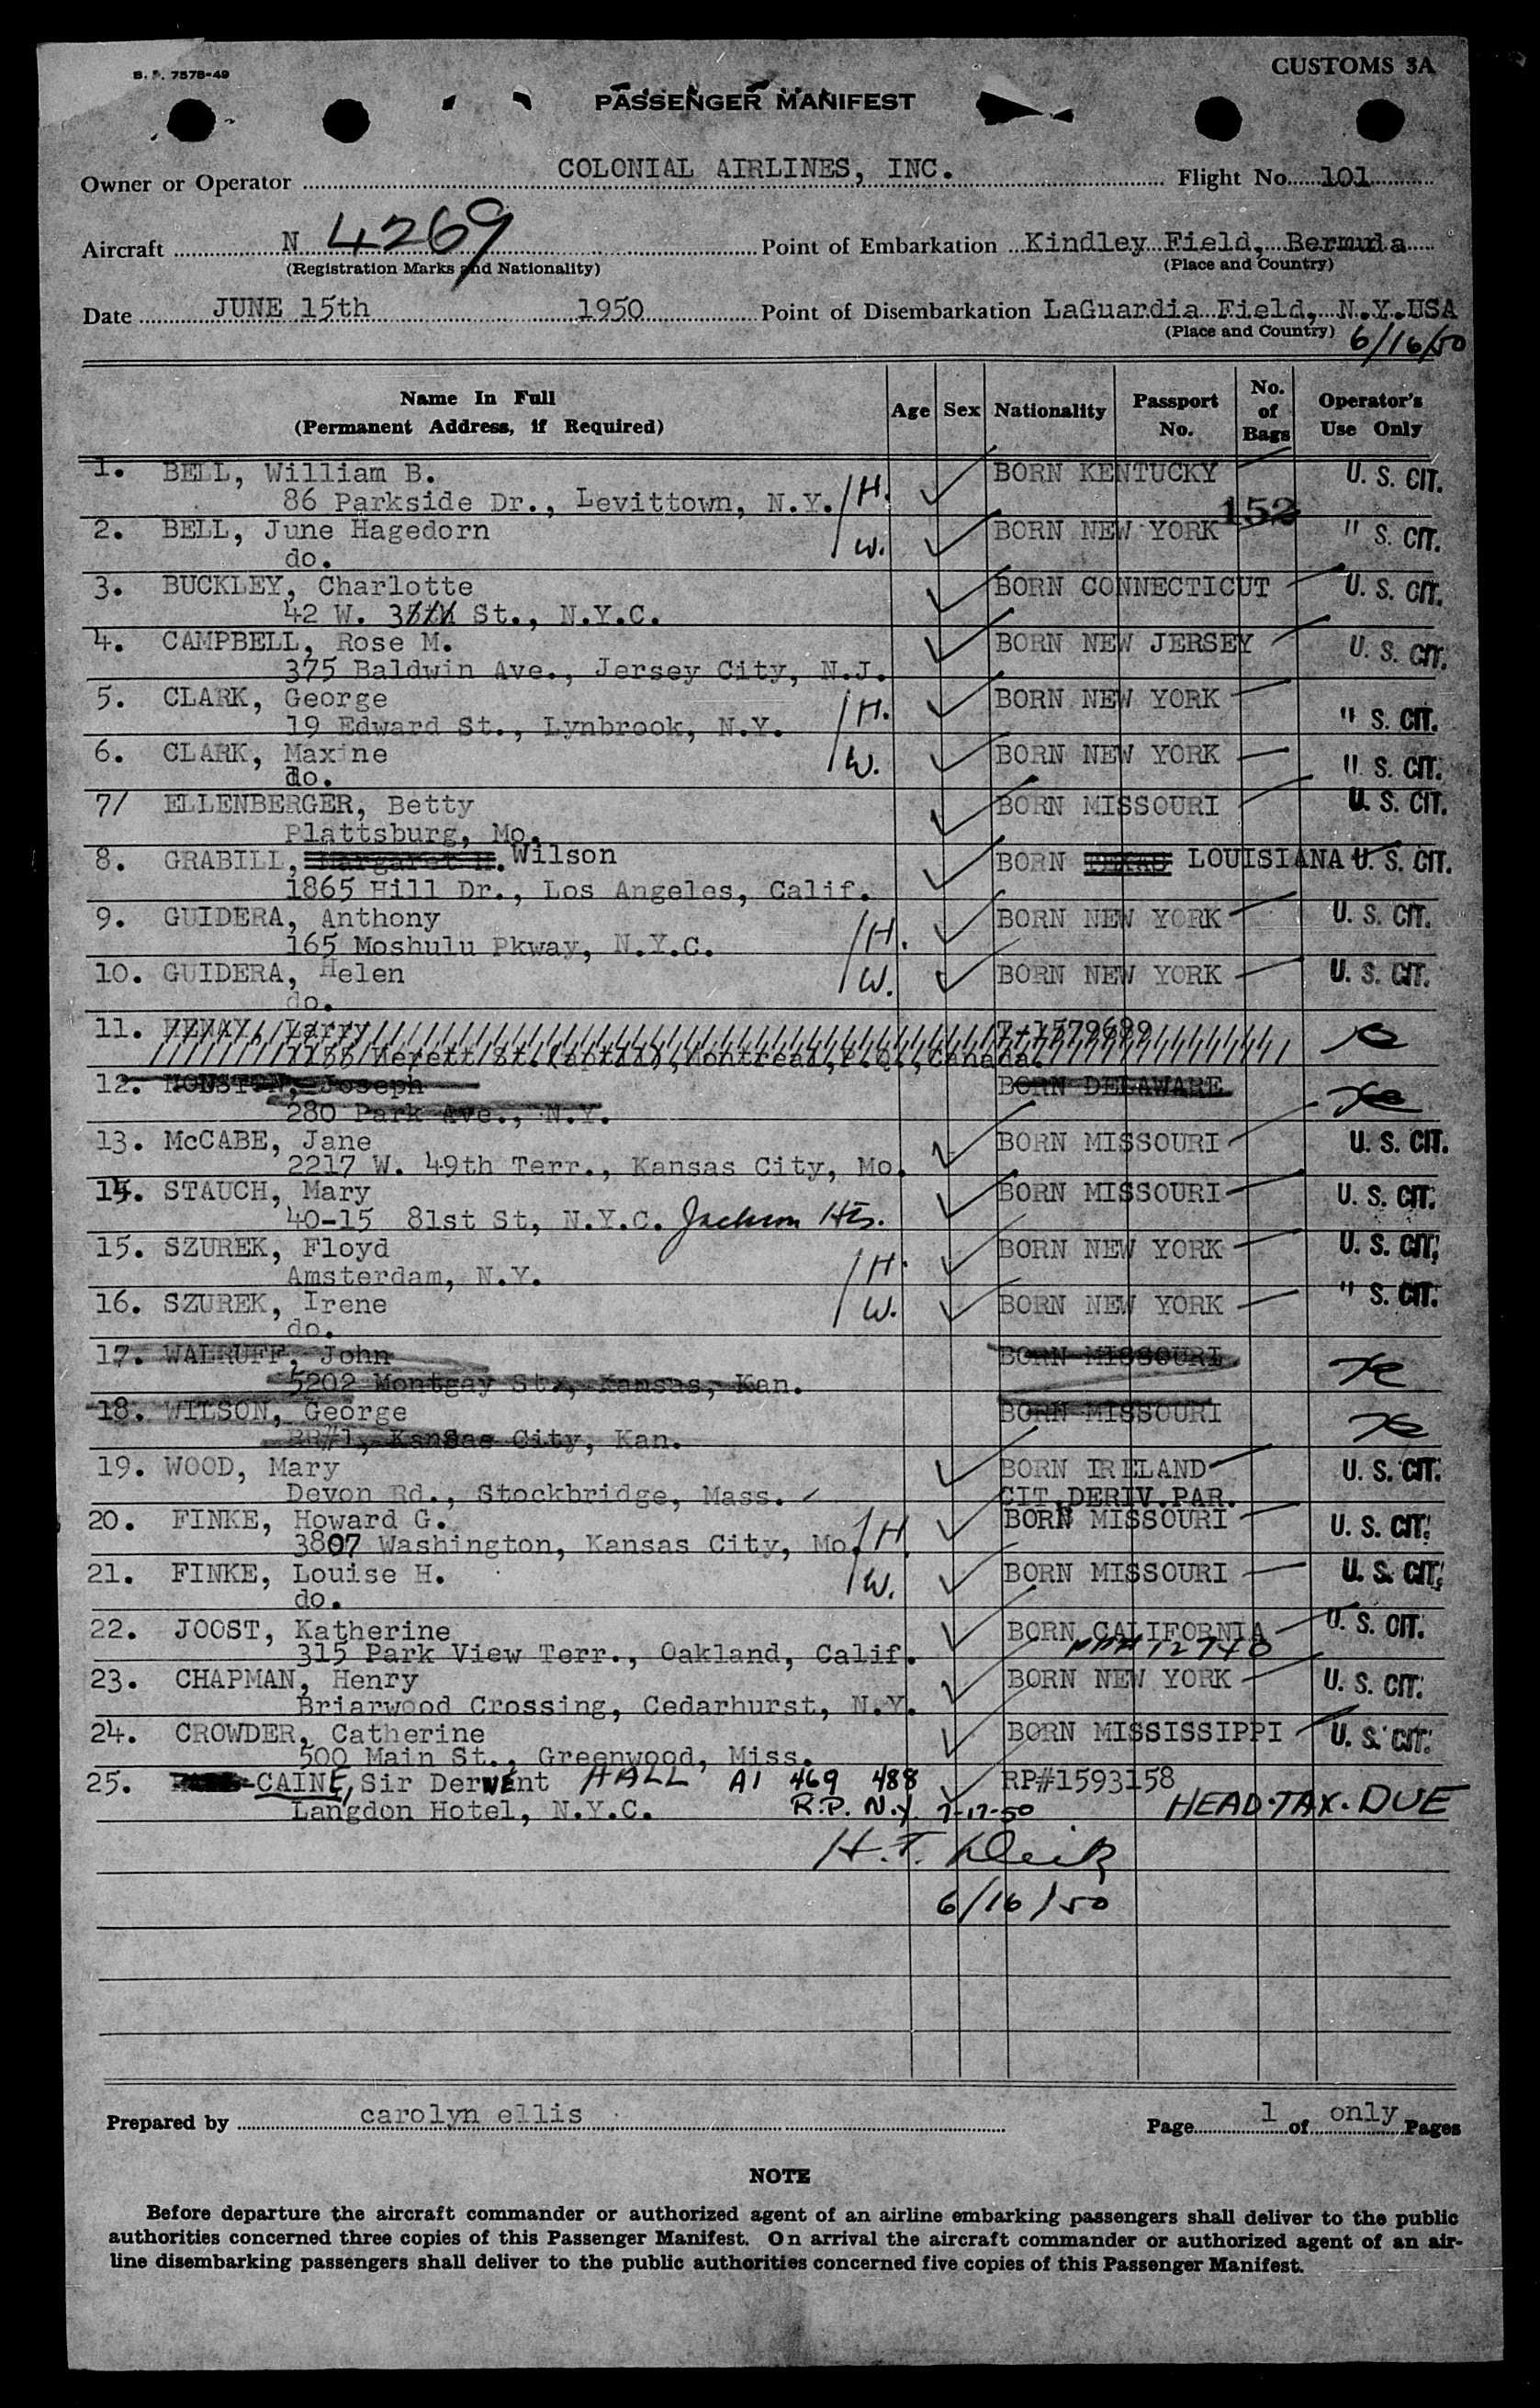 B. P. 7578-49
CUSTOMS 3A
PASSENGER MANIFEST
Owner or Operator COLONIAL AIRLINES, INC. Flight No. 101
Aircraft N 4269 Point of Embarkation Kindley Field, Bermuda
(Registration Marks and Nationality) (Place and Country)
Date JUNE 15th 1950 Point of Disembarkation LaGuardia Field, N.Y.USA
(Place and Country) 6/16/50
Name In Full
(Permanent Address, if Required)
Age Sex Nationality Passport No. No. of Bags Operator's Use Only
1. BELL, William B. BORN KENTUCKY U. S. CIT.
86 Parkside Dr., Levittown, N.Y. H.
152
2. BELL, June Hagedorn BORN NEW YORK " S. CIT.
do. W.
3. BUCKLEY, Charlotte BORN CONNECTICUT U. S. CIT.
42 W. St., N.Y.C.
4. CAMPBELL, Rose M. BORN NEW JERSEY U. S. CIT.
375 Baldwin Ave., Jersey City, N.J.
5. CLARK, George BORN NEW YORK " S. CIT.
19 Edward St., Lynbrook, N.Y. H.
6. CLARK, Maxine BORN NEW YORK " S. CIT.
do. W.
7/ ELLENBERGER, Betty BORN MISSOURI U. S. CIT.
Plattsburg, Mo.
8. GRABILL, Margaret H. Wilson BORN TEXAS LOUISIANA U. S. CIT.
1865 Hill Dr., Los Angeles, Calif.
9. GUIDERA, Anthony BORN NEW YORK U. S. CIT.
165 Moshulu Pkway, N.Y.C. H.
10. GUIDERA, Helen BORN NEW YORK U. S. CIT.
do. W.
11. Larry 1579689
Montreal, P.Q., Canada.
12. HOUSTON, Joseph BORN DELAWARE
280 Park Ave., N.Y.
13. McCABE, Jane BORN MISSOURI U. S. CIT.
2217 W. 49th Terr., Kansas City, Mo.
14. STAUCH, Mary BORN MISSOURI U. S. CIT.
40-15 81st St, N.Y.C. Jackson Hts.
15. SZUREK, Floyd BORN NEW YORK U. S. CIT.
Amsterdam, N.Y. H.
16. SZUREK, Irene BORN NEW YORK " S. CIT.
do. W.
17. WALRUFF, John BORN MISSOURI
5202 Montgay St., Kansas, Kan.
18. WILSON, George BORN MISSOURI
RR#1, Kansas City, Kan.
19. WOOD, Mary BORN IRELAND U. S. CIT.
Devon Rd., Stockbridge, Mass. CIT.DERIV.PAR.
20. FINKE, Howard G. BORN MISSOURI U. S. CIT.
3807 Washington, Kansas City, Mo. H.
21. FINKE, Louise H. BORN MISSOURI U. S. CIT.
do. W.
22. JOOST, Katherine BORN CALIFORNIA U. S. CIT.
315 Park View Terr., Oakland, Calif.
23. CHAPMAN, Henry BORN NEW YORK U. S. CIT.
Briarwood Crossing, Cedarhurst, N.Y.
24. CROWDER, Catherine BORN MISSISSIPPI U. S. CIT.
500 Main St., Greenwood, Miss.
25. CAINE, Sir Derwent HALL A1 469 488 RP#1593158
Langdon Hotel, N.Y.C. R.P. N.Y. 7-17-50 HEAD TAX DUE
H. T.
6/16/50
Prepared by carolyn ellis Page 1 of only Pages
NOTE
Before departure the aircraft commander or authorized agent of an airline embarking passengers shall deliver to the public
authorities concerned three copies of this Passenger Manifest. On arrival the aircraft commander or authorized agent of an air-
line disembarking passengers shall deliver to the public authorities concerned five copies of this Passenger Manifest.